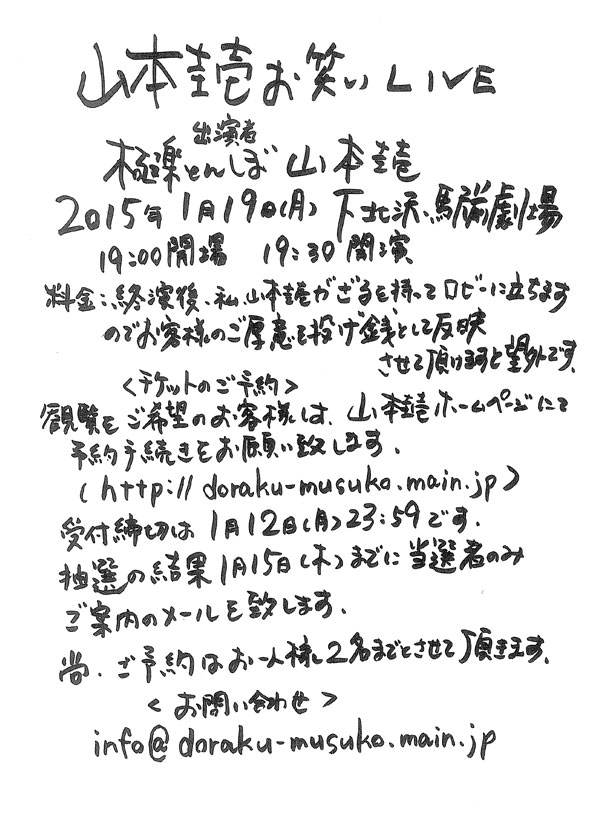 山本圭壱お笑いLIVE
出演者
極楽とんぼ 山本圭壱
2015年1月19日(月) 下北沢、駅前劇場
19:00開場 19:30開演
料金:、終演後、私、山本圭壱がざるを持ってロビーに立ちます
のでお客様のご厚意を投げ銭として反映
させて頂けますと望外です。
<チケットのご予約>
観覧をご希望のお客様は、山本圭壱ホームページにて
予約手続きをお願い致します。
(http://doraku-musuko.main.jp)
受付締切は1月12日(月)23:59です。
抽選の結果1月15日(木)までに当選者のみ
ご案内のメールを致します。
尚、ご予約はお一人様2名までとさせて頂きます。
<お問い合わせ>
info@doraku-musuko.main.jp